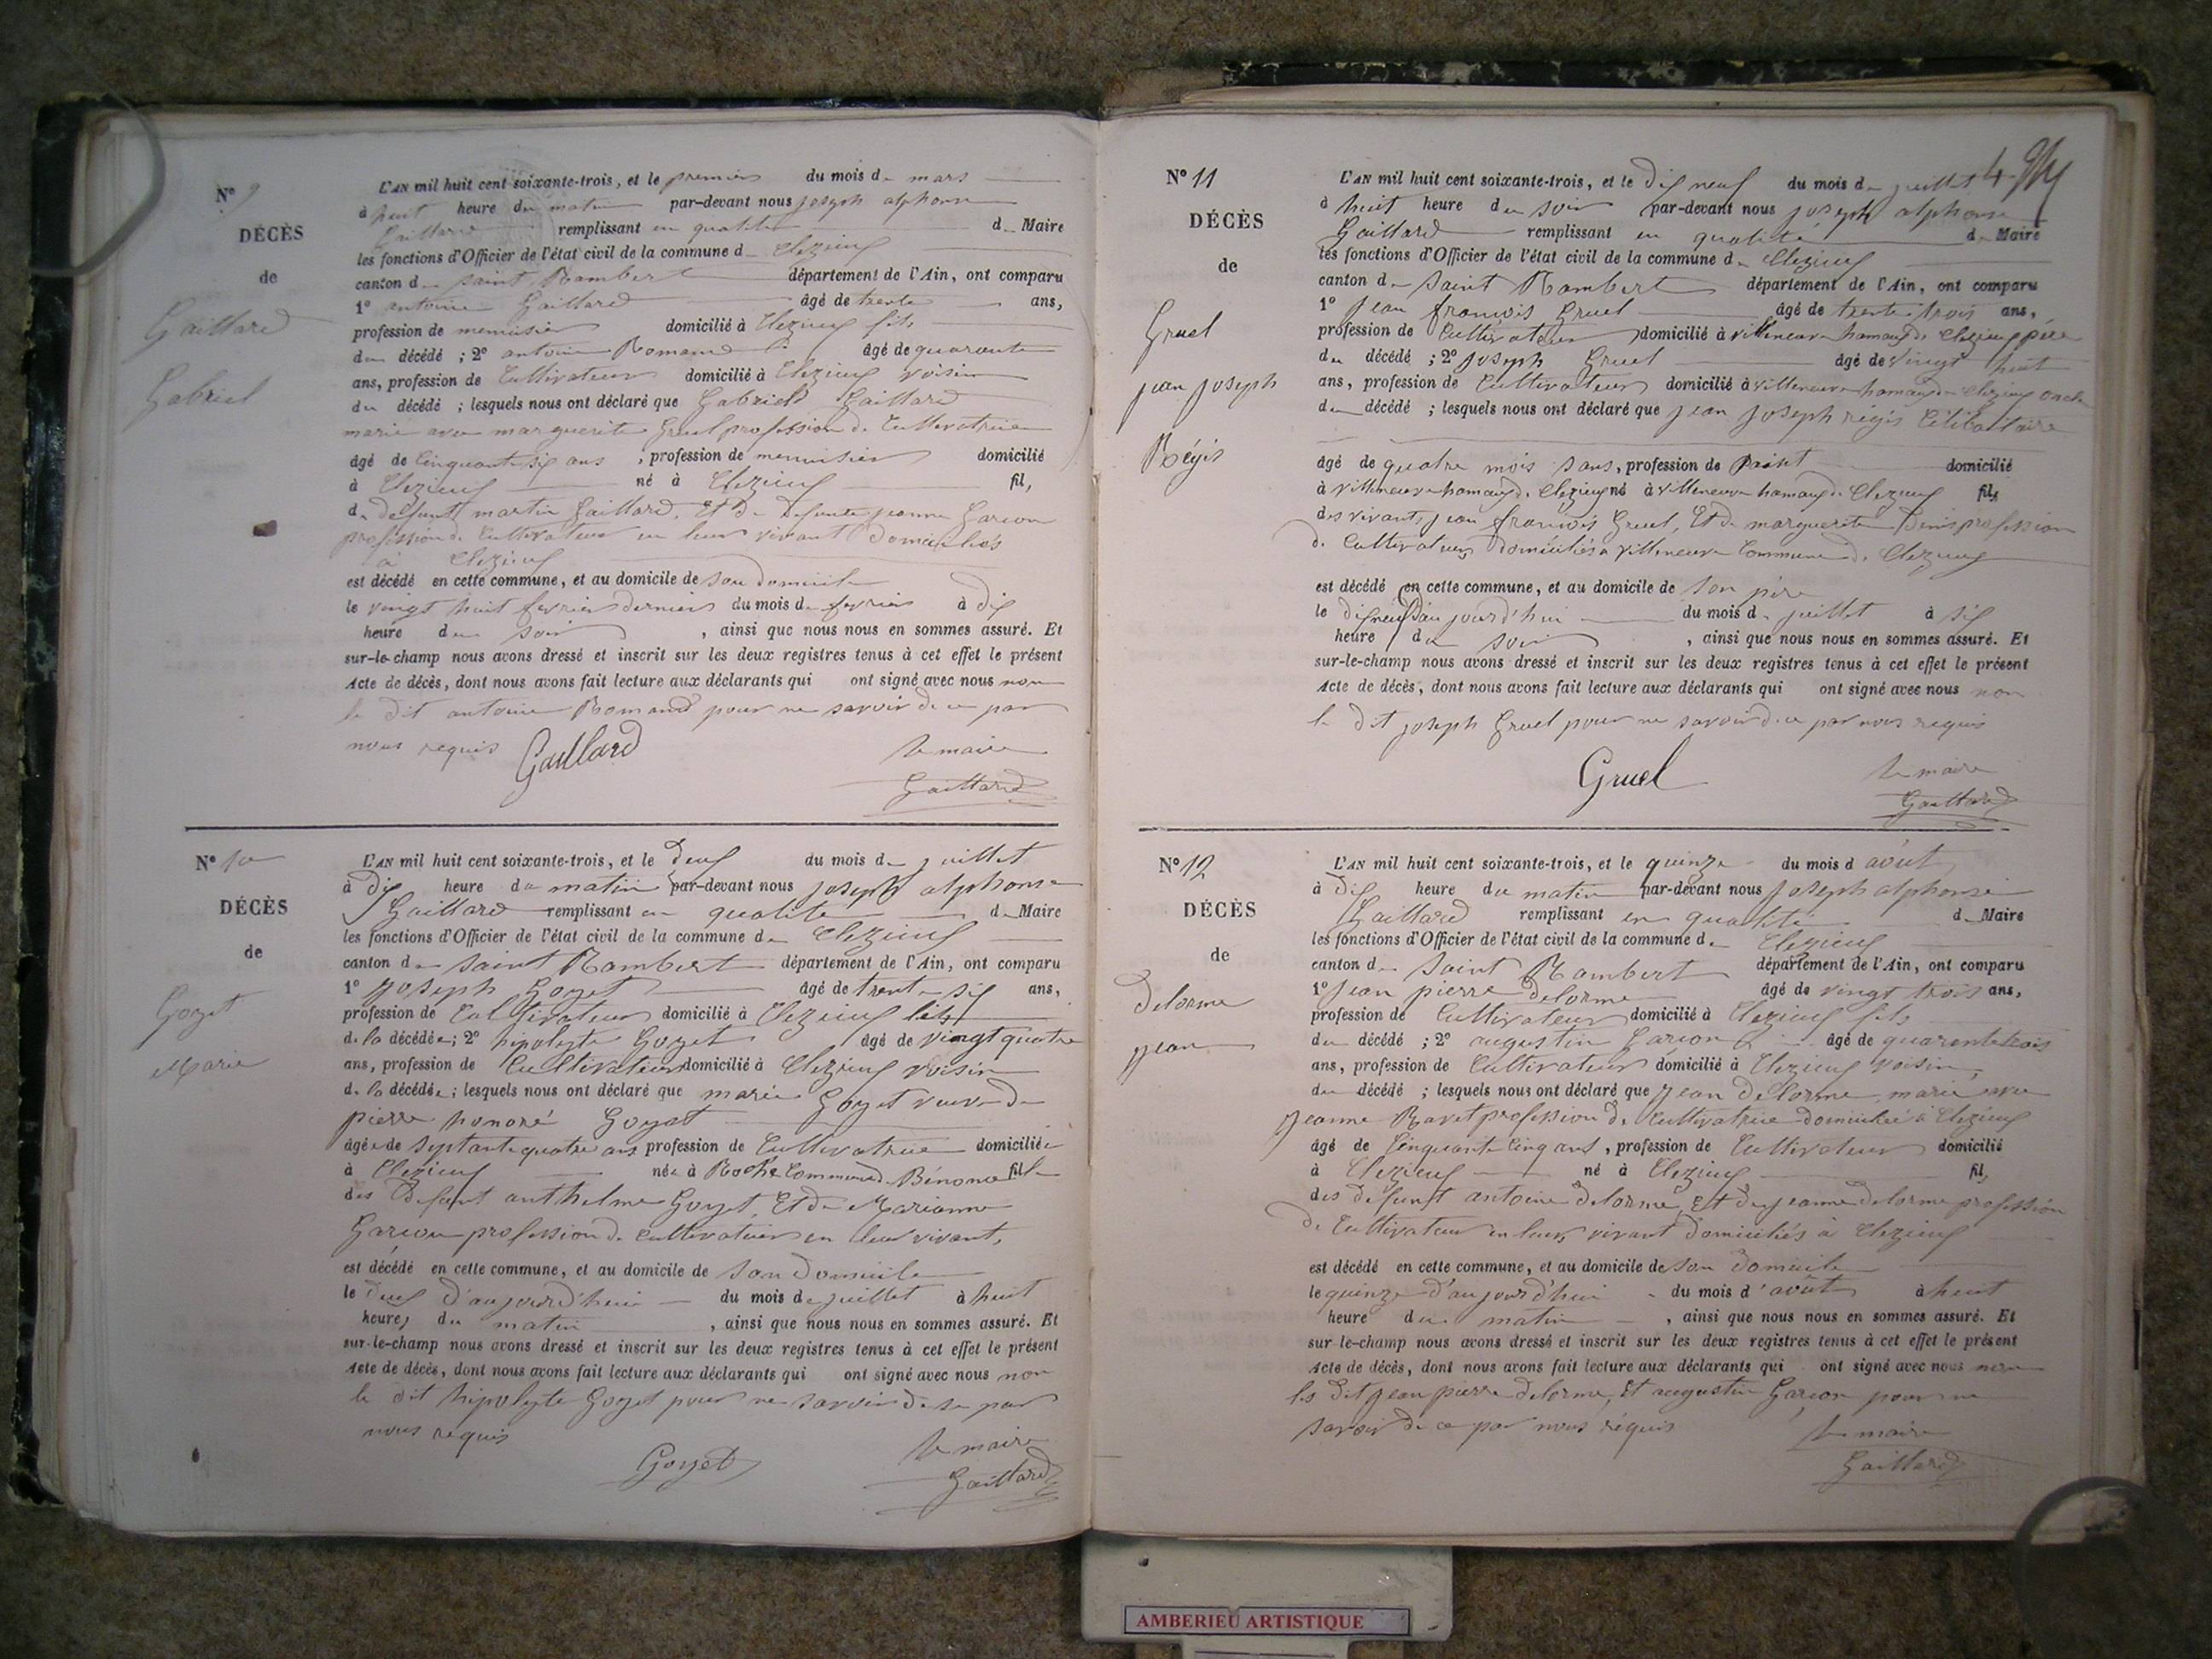 N° 9
DÉCÈS
de
Gaillard
Gabriel
L'AN mil huit cent soixante-trois, et le premier du mois de mars
à huit heure du matin par-devant nous joseph alphonse
Gaillard remplissant en qualité de Maire
les fonctions d'Officier de l'état civil de la commune de Clezieux
canton de saint Rambert département de l'Ain, ont comparu
1° antoine Gaillard âgé de trente ans,
profession de menuisier domicilié à Clezieux fils
du décédé ; 2° antoine Romand âgé de quarante
ans, profession de Cultivateur domicilié à Clezieux voisin
du décédé ; lesquels nous ont déclaré que Gabriel Gaillard
marié avec marguerite Gruel profession de Cultivatrice
âgé de Cinquante six ans , profession de menuisier domicilié
à Clezieux né à Clezieux fils
de défunt martin Gaillard, Et de défunte jeanne Garion
profession de Cultivateur en leur vivant Domiciliés
à Clezieux
est décédé en cette commune, et au domicile de son domicile
le vingt huit fevrier dernier du mois de fevrier à dix
heure du soir , ainsi que nous nous en sommes assuré. Et
sur-le-champ nous avons dressé et inscrit sur les deux registres tenus à cet effet le présent
Acte de décès, dont nous avons fait lecture aux déclarants qui ont signé avec nous non
le dit antoine Romand pour ne savoir de ce par
nous requis Gaillard le maire
Gaillard
N° 10
DÉCÈS
de
Goyet
Marie
L'AN mil huit cent soixante-trois, et le deux du mois de juillet
à dix heure du matin par-devant nous joseph alphonse
Gaillard remplissant en qualité de Maire
les fonctions d'Officier de l'état civil de la commune de Clezieux
canton de saint Rambert département de l'Ain, ont comparu
1° joseph Goyet âgé de trente six ans,
profession de Cultivateur domicilié à Clezieux fils
de la décédée; 2° hipolyte Goyet âgé de vingt quatre
ans, profession de Cultivateur domicilié à Clezieux voisin
de la décédée; lesquels nous ont déclaré que marie Goyet veuve de
pierre honoré Goyet
âgée de septante quatre ans profession de Cultivatrice domiciliée
à Clezieux née à Roche Commune de Bénonce fille
des défunt anthelme Goyet, Et de Marianne
Garion profession de Cultivateur en leur vivant,
est décédé en cette commune, et au domicile de son Domicile
le deux d'aujourd'hui du mois de juillet à huit
heure, du matin , ainsi que nous nous en sommes assuré. Et
sur-le-champ nous avons dressé et inscrit sur les deux registres tenus à cet effet le présent
Acte de décès, dont nous avons fait lecture aux déclarants qui ont signé avec nous non
le dit hipolyte Goyet pour ne savoir de ce par
nous requis le maire
Goyet Gaillard
N° 11
DÉCÈS
de
Gruel
jean joseph
Régis
L'AN mil huit cent soixante-trois, et le dix neuf du mois de juillet
à huit heure du soir par-devant nous joseph alphonse
Gaillard remplissant en qualité de Maire
les fonctions d'Officier de l'état civil de la commune de Clezieux
canton de Saint Rambert département de l'Ain, ont comparu
1° Jean françois Gruel âgé de trente trois ans,
profession de Cultivateur domicilié à villeneuve hamaux de Clezieux père
du décédé ; 2° joseph Gruel âgé de vingt huit
ans, profession de Cultivateur domicilié à villeneuve hamaux de Clezieux oncle
du décédé ; lesquels nous ont déclaré que jean joseph régis Célibataire
âgé de quatre mois ans, profession de Point domicilié
à villeneuve hamaux de Clezieux né à villeneuve hamaux de Clezieux fils
des vivants jean françois Gruel, Et de marguerite Denis profession
de Cultivateurs Domiciliés à villeneuve Commune de Clezieux
est décédé en cette commune, et au domicile de son père
le dixneuf d'aujourd'hui du mois de juillet à six
heure du soir , ainsi que nous nous en sommes assuré. Et
sur-le-champ nous avons dressé et inscrit sur les deux registres tenus à cet effet le présent
Acte de décès, dont nous avons fait lecture aux déclarants qui ont signé avec nous non
le dit joseph Gruel pour ne savoir de ce par nous requis
Gruel le maire
Gaillard
N° 12
DÉCÈS
de
Delorme
jean
L'AN mil huit cent soixante-trois, et le quinze du mois d'août
à dix heure du matin par-devant nous joseph alphonse
Gaillard remplissant en qualité de Maire
les fonctions d'Officier de l'état civil de la commune de Clezieux
canton de Saint Rambert département de l'Ain, ont comparu
1° Jean pierre Delorme âgé de vingt trois ans,
profession de Cultivateur domicilié à Clezieux fils
du décédé ; 2° augustin Garion âgé de quarante trois
ans, profession de Cultivateur domicilié à Clezieux voisin,
du décédé ; lesquels nous ont déclaré que jean Delorme, marié avec
jeanne Ravet profession de Cultivatrice domiciliée à Clezieux
âgé de Cinquante Cinq ans , profession de Cultivateur domicilié
à Clezieux né à Clezieux fils
des défunt antoine Delorme, Et de jeanne Delorme profession
de Cultivateur en leur vivant Domiciliés à Clezieux
est décédé en cette commune, et au domicile de son Domicile
le quinze d'aujourd'hui du mois d'août à huit
heure du matin , ainsi que nous nous en sommes assuré. Et
sur-le-champ nous avons dressé et inscrit sur les deux registres tenus à cet effet le présent
Acte de décès, dont nous avons fait lecture aux déclarants qui ont signé avec nous non
les dit jean pierre Delorme, Et augustin Garion pour ne
savoir de ce par nous réquis le maire
Gaillard
AMBERIEU ARTISTIQUE